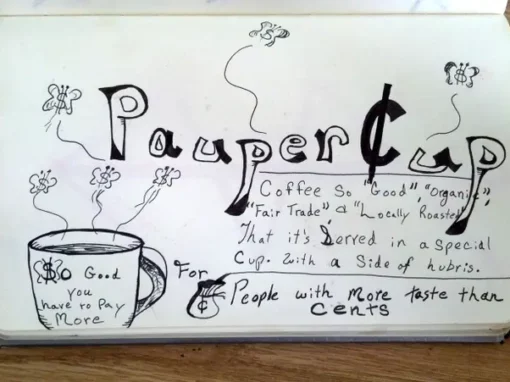 Pauper ¢up
Coffee So "Good", "Organic",
"Fair Trade", & "Locally Roasted"
That it's Served in a Special
Cup. With a Side of hubris.
$o Good
you
have to Pay
More
For
¢ People with More taste than
Cents